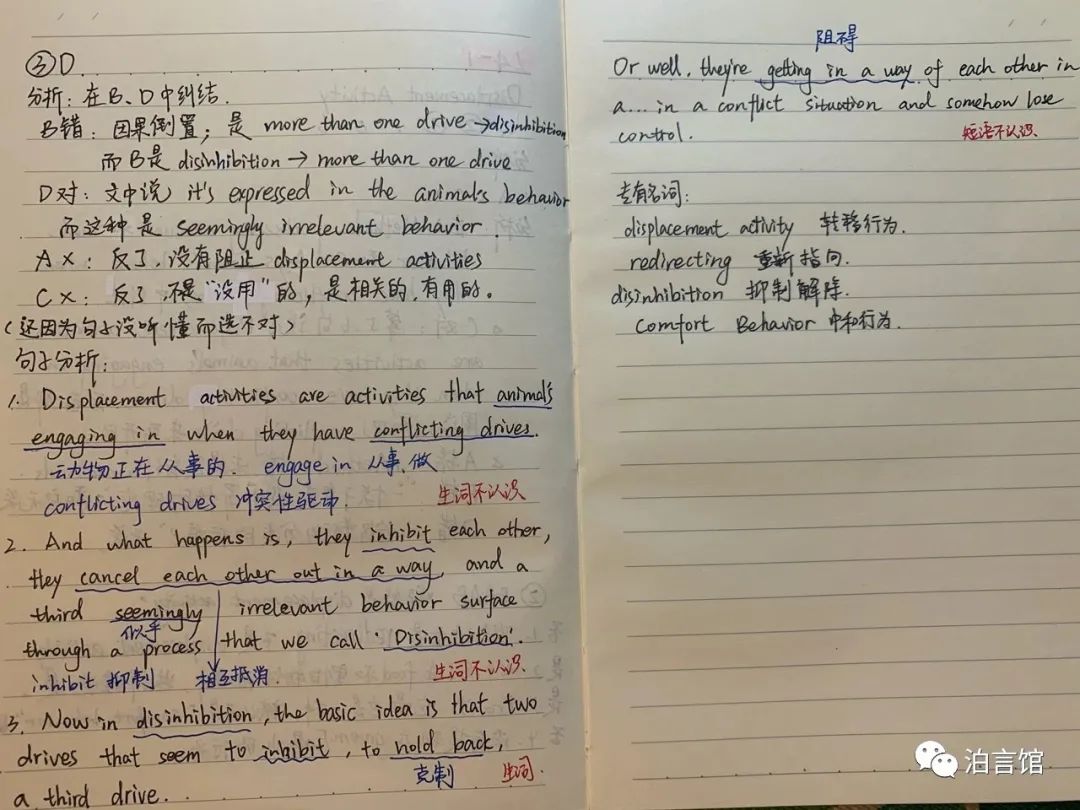 ③ D
分析：在B、D中纠结.
B错：因果倒置；是 more than one drive → disinhibition
而B是 disinhibition → more than one drive
D对：文中说 it's expressed in the animal's behavior
而这种是 seemingly irrelevant behavior.
A ×：反了，没有阻止 displacement activities
C ×：反了，不是“没用”的，是相关的，有用的。
（还因为句子没听懂而选不对）
句子分析：
1. Displacement activities are activities that animal's
engaging in when they have conflicting drives.
动物正在从事的. engage in 从事、做
conflicting drives 冲突性驱动. 生词不认识
2. And what happens is, they inhibit each other,
they cancel each other out in a way, and a
third seemingly irrelevant behavior surface
似乎
through a process that we call 'Disinhibition'.
inhibit 抑制 相互抵消. 生词不认识.
3. Now in disinhibition, the basic idea is that two
drives that seem to inhibit, to hold back,
克制 生词.
a third drive.
阻碍
Or well, they're getting in a way of each other in
a... in a conflict situation and somehow lose
control. 短语不认识
专有名词：
displacement activity 转移行为.
redirecting 重新指向.
disinhibition 抑制解除.
Comfort Behavior 中和行为.
泊言馆